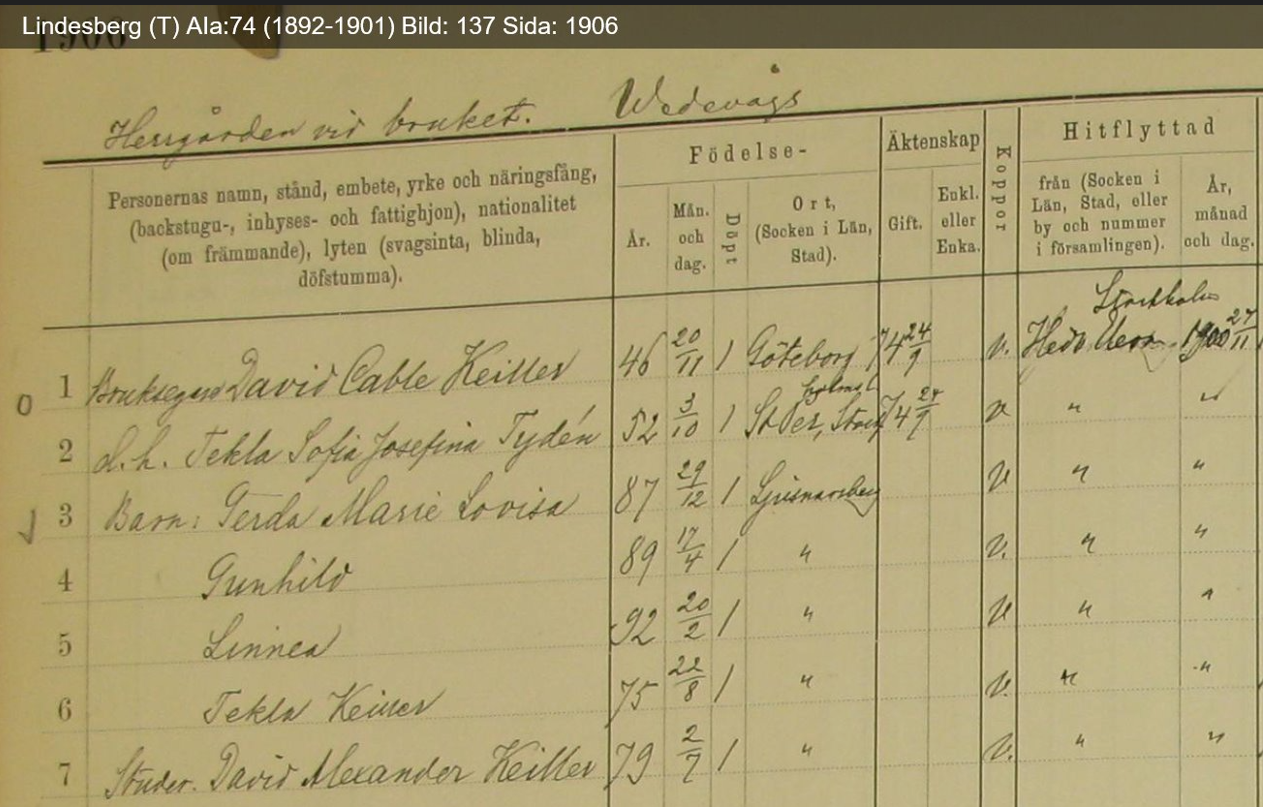 Lindesberg (T) AIa:74 (1892-1901) Bild: 137 Sida: 1906
1906
Herrgården vid bruket. Wedevågs
Personernas namn, stånd, embete, yrke och näringsfång,
(backstugu-, inhyses- och fattighjon), nationalitet
(om främmande), lyten (svagsinta, blinda,
döfstumma).
Födelse-
År.
Mån.
och
dag.
Döpt
Ort,
(Socken i Län,
Stad).
Äktenskap
Gift.
Enkl.
eller
Enka.
Koppor
Hitflyttad
från (Socken i
Län, Stad, eller
by och nummer
i församlingen).
År,
månad
och dag.
Stockholm
1 Bruksegare David Cable Keiller 46 20/11 / Göteborg 74 24/9 v. Hedv Eleon. 1900 27/11
2 d. h. Tekla Sofia Josefina Tydén 52 3/10 / 74 24/9 v " "
3 Barn: Gerda Marie Lovisa 87 29/12 / Ljusnarsberg v " "
4 Gunhild 89 17/4 / " v. " "
5 Linnea 92 20/2 / " v " "
6 Tekla Keiller 75 22/8 / " v. " "
7 Studer. David Alexander Keiller 79 2/7 / " v. " "